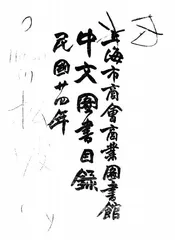 上海市商會商業圖書館
中文圖書目錄
民國廿四年